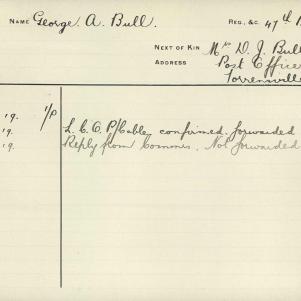 NAME George A. Bull. REG., &C. 47th
NEXT OF KIN Mrs D. J. Bull
ADDRESS Post Office
Torrensville
19. 1/P
19. L.C.O. P/Cable, confirmed. forwarded
19. Reply from Commis. Not forwarded